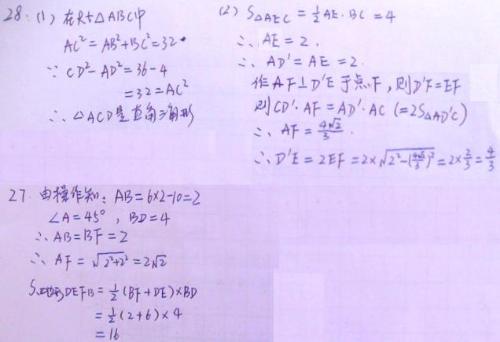 28. (1) 在Rt△ABC中
AC²=AB²+BC²=32.
∵ CD²-AD²=36-4
=32=AC²
∴ △ACD是直角三角形
(2) S△AEC = 1/2 AE·BC = 4
∴ AE = 2.
∴ AD' = AE = 2.
作AF⊥D'E于点F, 则D'F=EF
则CD'·AF=AD'·AC (=2S△AD'C)
∴ AF = 4√2/3.
∴ D'E = 2EF = 2×√(2²-(4√2/3)²) = 2×2/3 = 4/3
27. 由操作知: AB=6×2-10=2
∠A=45°, BD=4
∴ AB=BF=2
∴ AF = √(2²+2²) = 2√2
S梯形DEFB = 1/2(BF+DE)×BD
= 1/2(2+6)×4
= 16